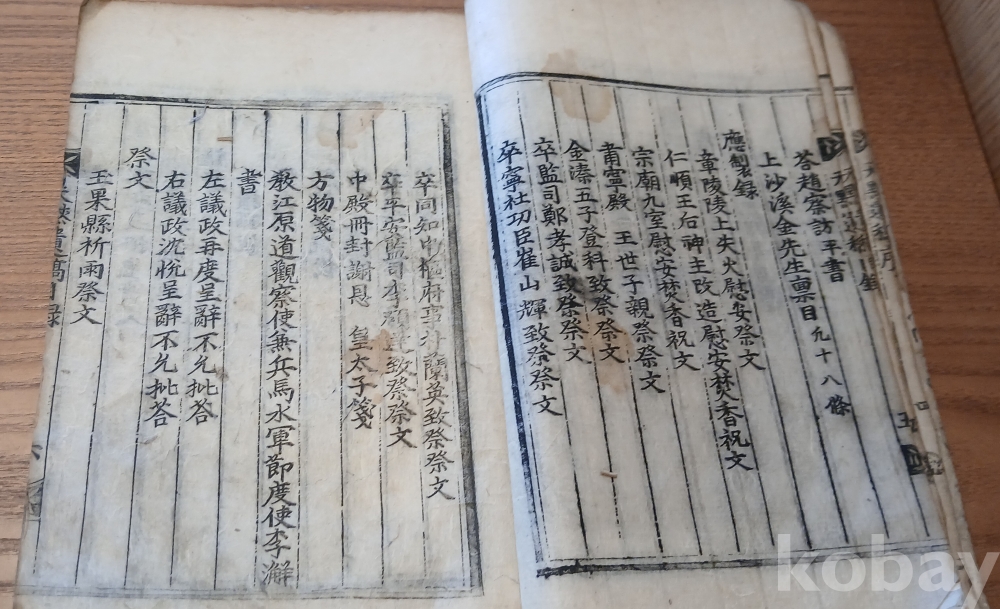 答趙察訪平書
上沙溪金先生稟目 九十八條
應製錄
章陵陵上失火慰安祭文
仁順王后神主改造慰安焚香祝文
宗廟九室慰安焚香祝文
肅寧殿 王世子親祭祭文
金溱五子登科致祭祭文
卒監司鄭孝誠致祭祭文
卒寧社功臣崔山輝致祭祭文
卒同知中樞府事朴蘭英致祭祭文
卒平安監司李 致祭祭文
中殿冊封謝恩 皇太子箋
方物箋
教江原道觀察使兼兵馬水軍節度使李澥
書
左議政再度呈辭不允批答
右議政沈悅呈辭不允批答
祭文
玉果縣祈雨祭文
遺稿目錄
kobay